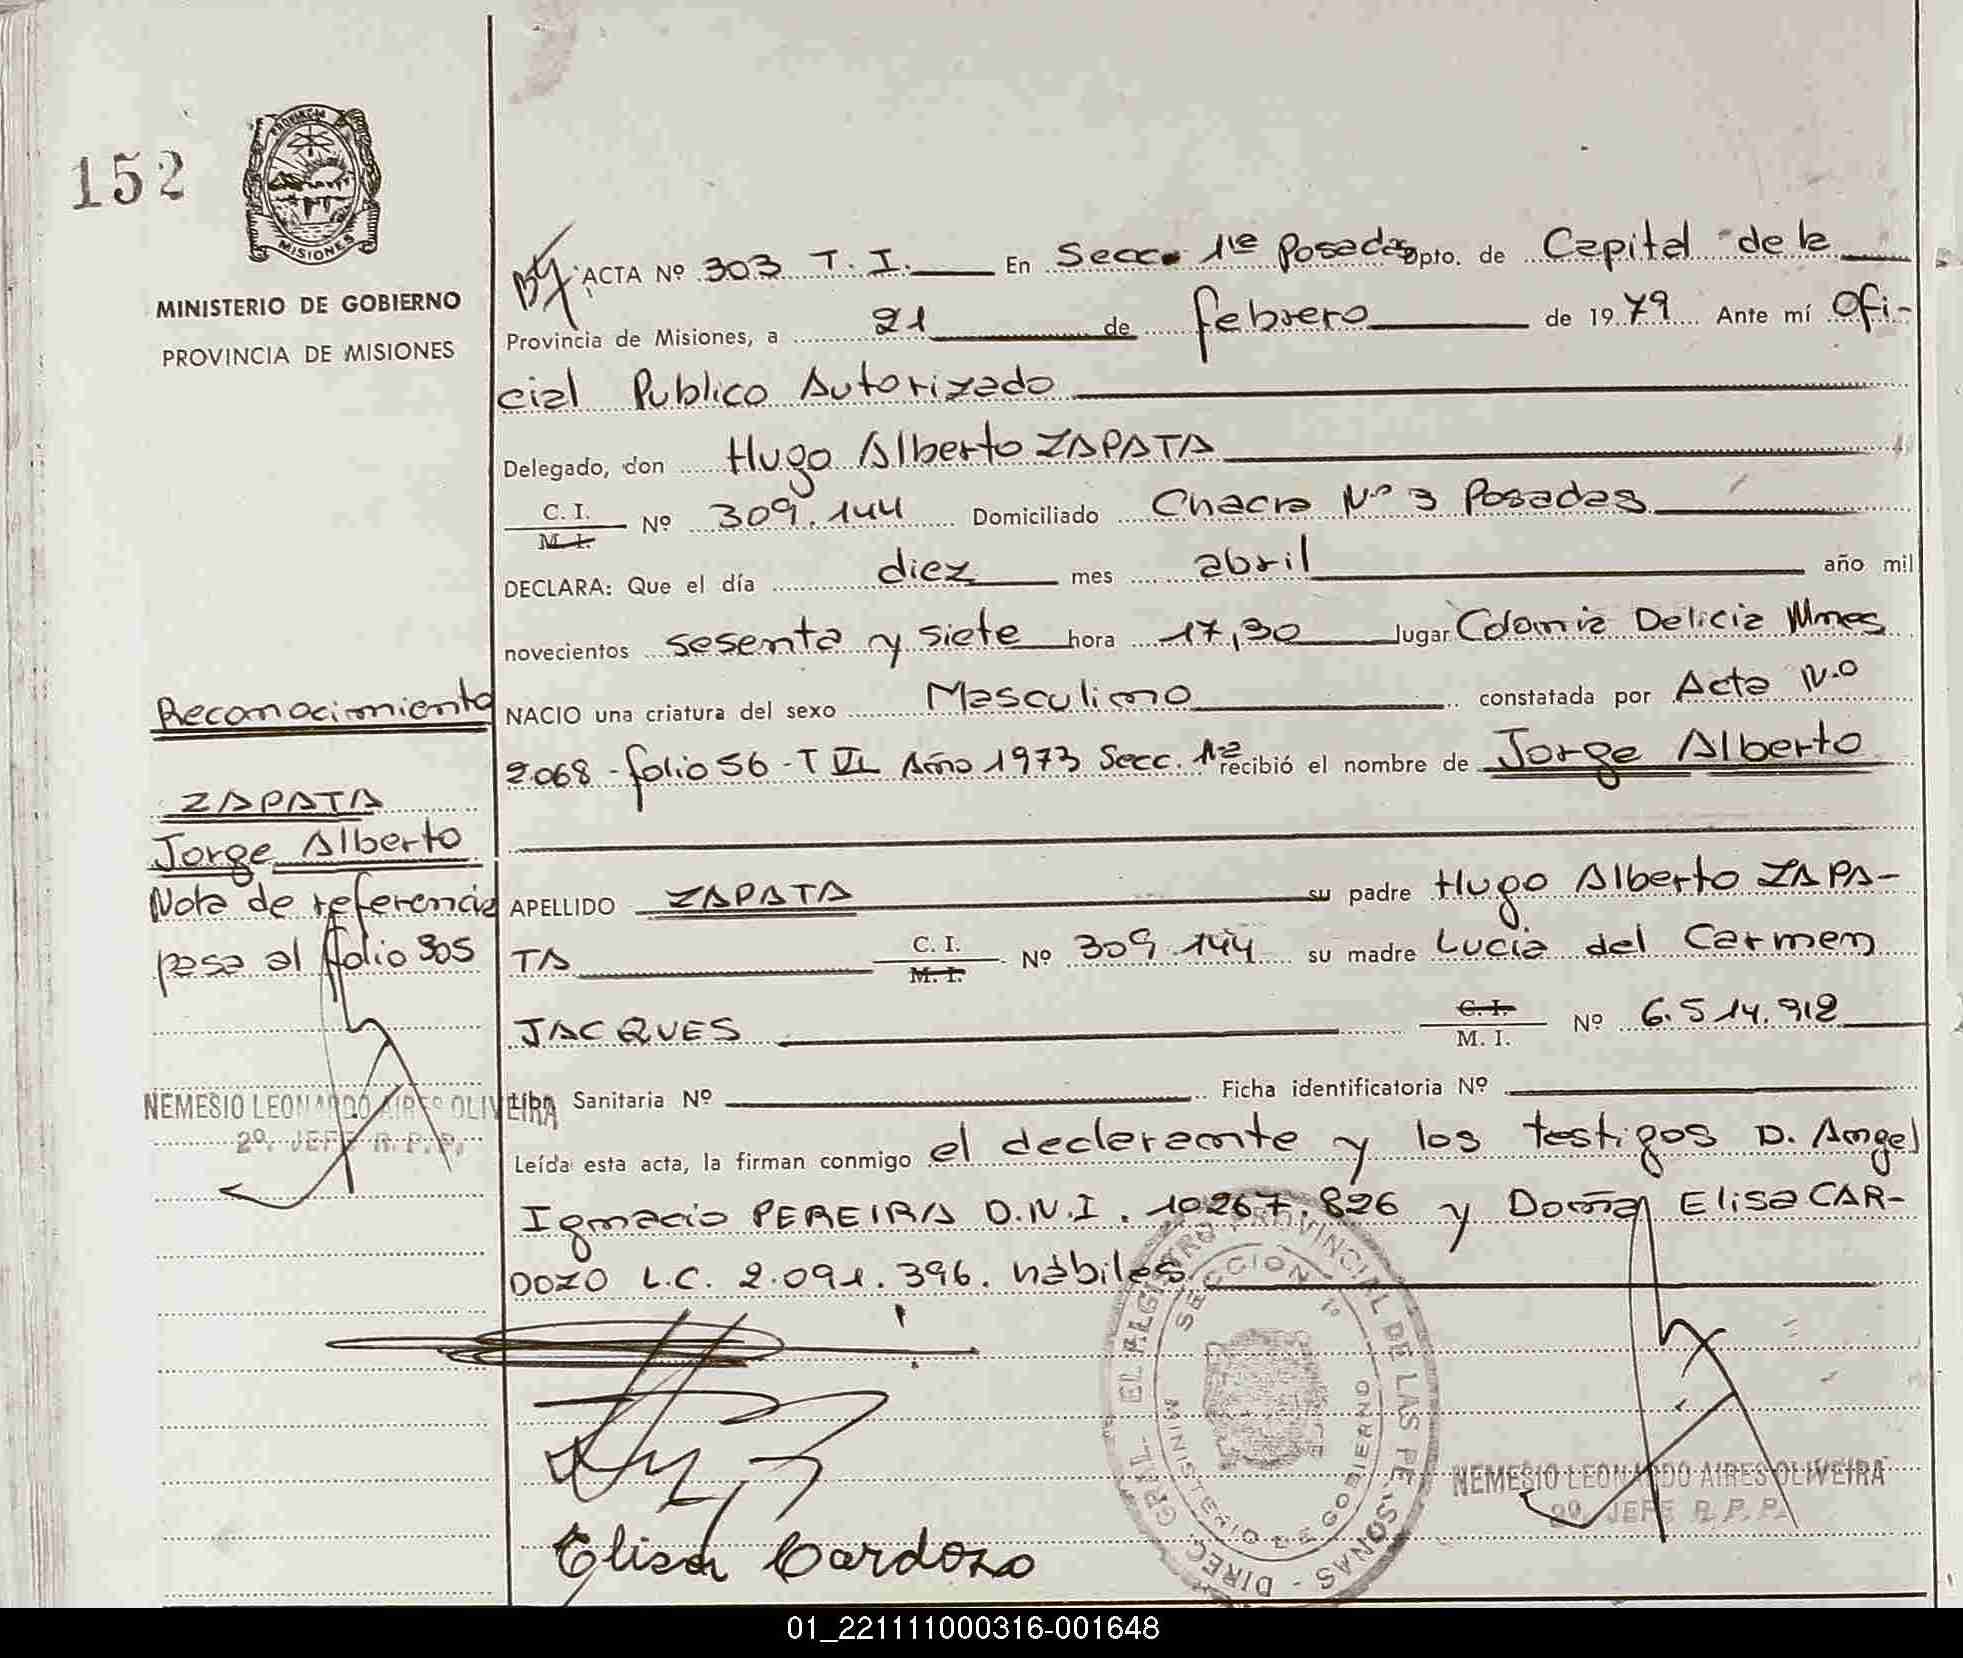 152
PROVINCIA
MISIONES
MINISTERIO DE GOBIERNO
PROVINCIA DE MISIONES
ACTA Nº 303 T. I. En Secc. 1ra Posadas Dpto. de Capital de la
Provincia de Misiones, a 21 de febrero de 1979 Ante mí Ofi-
cial Publico Autorizado
Delegado, don Hugo Alberto ZAPATA
C. I.
M. I. Nº 309.144 Domiciliado Chacra Nº 3 Posadas
DECLARA: Que el día diez mes abril año mil
novecientos sesenta y siete hora 17,30 lugar Colonia Delicia Mnes
NACIO una criatura del sexo Masculino constatada por Acta N.º
2068 - folio 56 - T VI Año 1973 Secc. 1ra recibió el nombre de Jorge Alberto
APELLIDO ZAPATA su padre Hugo Alberto ZAPA-
TA C. I.
M. I. Nº 309.144 su madre Lucia del Carmen
JACQUES C. I.
M. I. Nº 6.514.912
Lib. Sanitaria Nº Ficha identificatoria Nº
Leída esta acta, la firman conmigo el declarante y los testigos D. Angel
Ignacio PEREIRA D.N.I. 10.267.826 y Doña Elisa CAR-
DOZO L.C. 2.091.396. hábiles
Reconocimiento
ZAPATA
Jorge Alberto
Nota de referencia
pasa al folio 305
NEMESIO LEONARDO AIRES OLIVEIRA
2º. JEFE R. P. P.
Elisa Cardozo
DIREC. GRAL. EL REGISTRO PROVINCIAL DE LAS PERSONAS -
SECCION 1º
MINISTERIO DE GOBIERNO
NEMESIO LEONARDO AIRES OLIVEIRA
2º JEFE R. P. P.
01_221111000316-001648